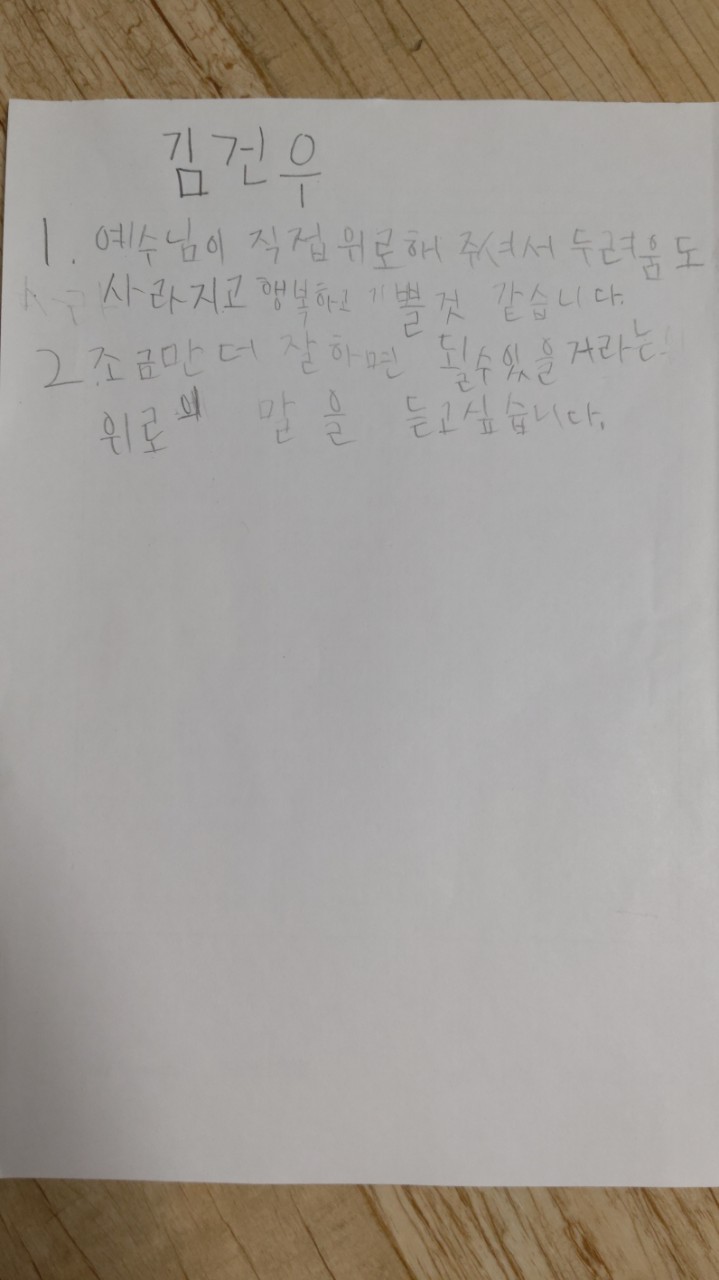 김건우
1. 예수님이 직접위로해 주셔서 두려움도
사라지고 행복하고 기쁠것 같습니다.
2. 조금만 더 잘하면 될수있을거라는
위로의 말을 듣고싶습니다.